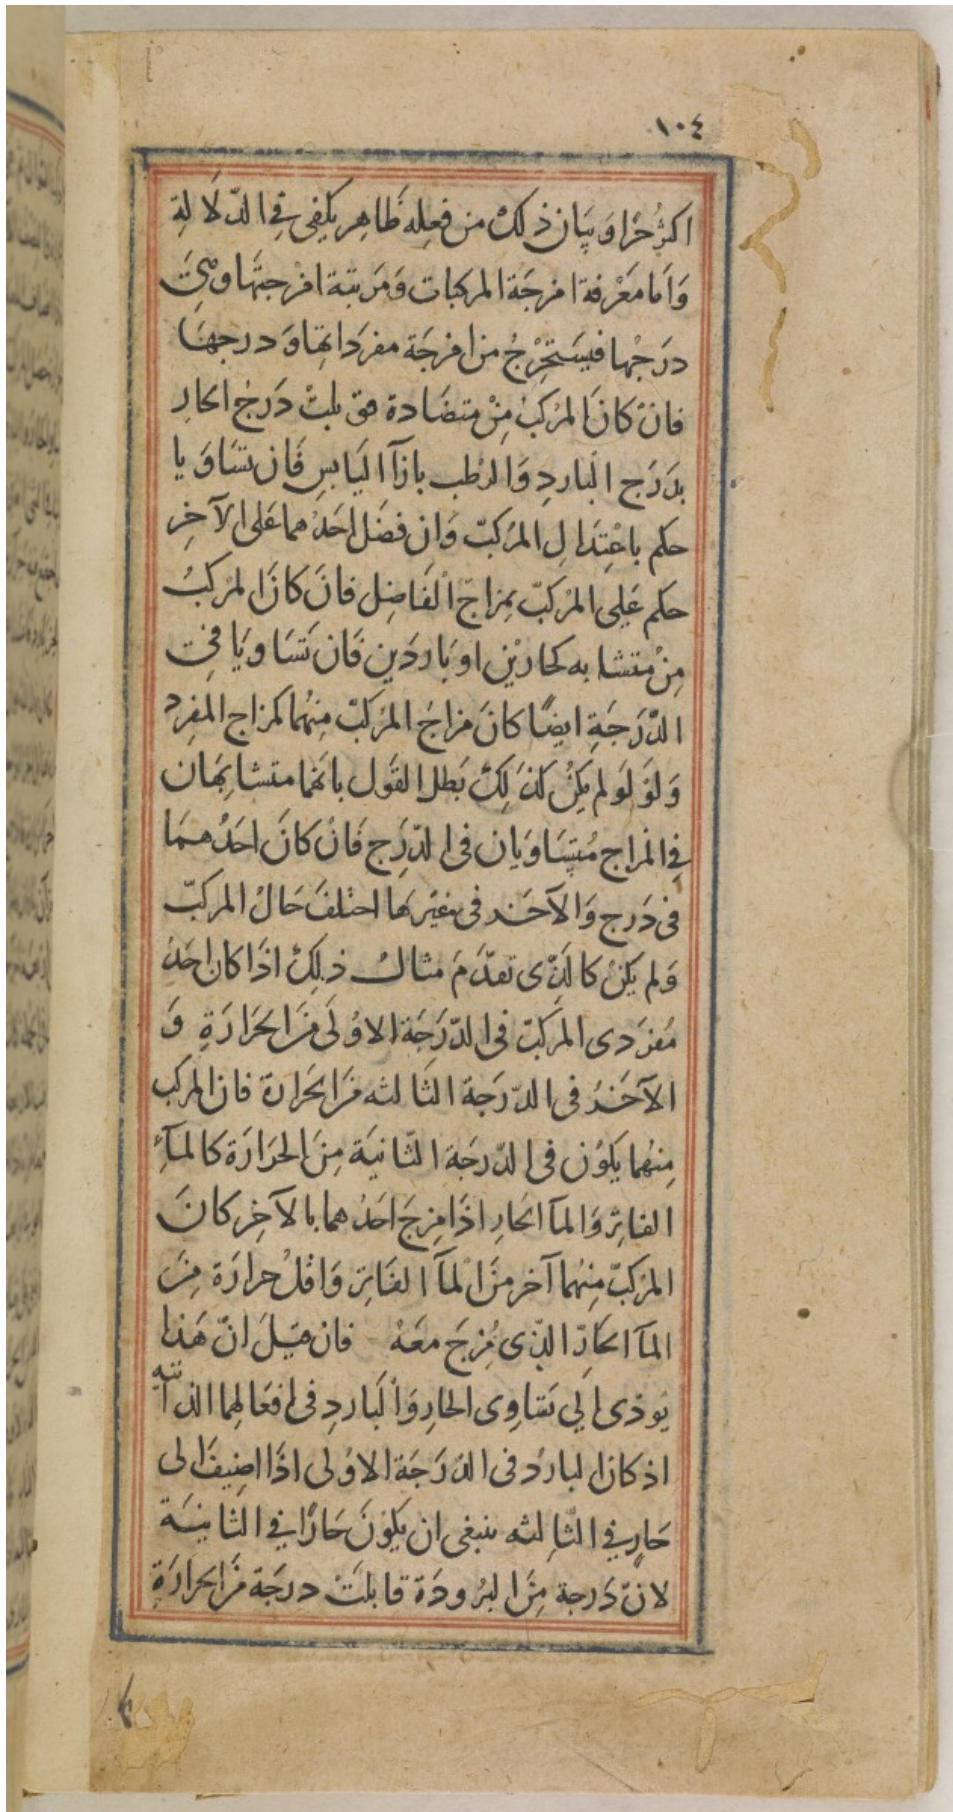 ١٠٤
اكثر حرا وبيان ذلك من فعله ظاهر يكفى فِي الدّلَالة
وَاَما مَعْرفة امزجَة المركبات وَمَرتبة امزجتهَا و
درَجْها فيسَتخْرجُ من امزجَة مفرَداتها وَدرجهَا
فانْ كانَ المرُكبُ مِنْ متضَادة قوبلتْ دَرَجُ الحار
بدَرَج الَبارِدِ وَالرّطب بازآ اليَابسِ فَان تسَاوَيا
حكم باعْتِدَالِ المرُكبّ وَان فضَل احَدُهما عَلى الآخرِ
حكم عَلى المرْكبّ بمِزاجّ الْفَاضِل فانَ كانَ المرْكبُ
مِنْ متشابه كحارَيْن او بَاردَين فَان تَسَاويَا في
الدَّرَجَةِ ايضًا كانَ مزاجَ المرَكبّ مِنهُما كمزاج المفِرد
وَلوَ لَو لم يَكنُ كذَلِكَ بَطل القَول بانهَما متشابهَان
فِي المزاج مُتسَاوَيان فى الدّرَج فَانْ كانَ احَدُهمَا
فى دَرج وَالآخَر فى غيْرهَا اختلفَ حَالُ المركبّ
وَلم يَكنْ كالذَّى تقدّمَ مثالُ ذلِكَ اذَا كان احَدَ
مُفرَدى المرَكبّ فى الدّرَجَة الاوُلَى مَن الحَرَارَةِ وَ
الآخَرُ فى الدّرَجَة الثَالثه مَن الحَرارة فان المرُكب
مِنهُما يَكوُن فى الدّرجَة الثّانيَة مِنَ الحَرَارَة كالمآءِ
الفاتِر وَالمآ الحَارِ اذَا مزِجَ احَدُهما بالآخِر كانَ
المرُكبّ مِنهُما آخر منَ المآ الفَاتر وَاقلُ حرارَة مِنَ
المآ الحَارّ الّذِى مُزِجَ معَهْ فان قيَل انّ هَذا
يوذى الَي تسَاوِى الحارِ وَالْبَاردِ فى افعَالِهما الذاتيه
اذ كانَ البَاردُ فى الدّرَجَة الاوُلى اذَا اضِيفَ الى
حَارٍ فِي الثّالِثه ينبغى ان يَكوُنَ حَارًا فِي الثانيَة
لانّ دَرجة مِنَ البرُودَة قابلتْ درجَة مَن الحرارَةِ